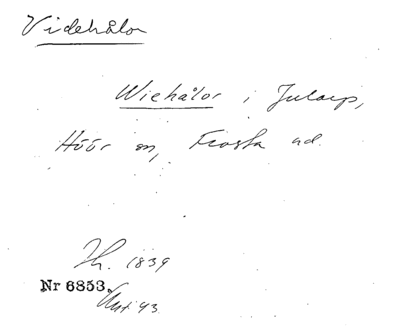 Videhålor
Wiehålor i Jularp,
Höör sn, Frosta hd.
1839
Nr 6853.